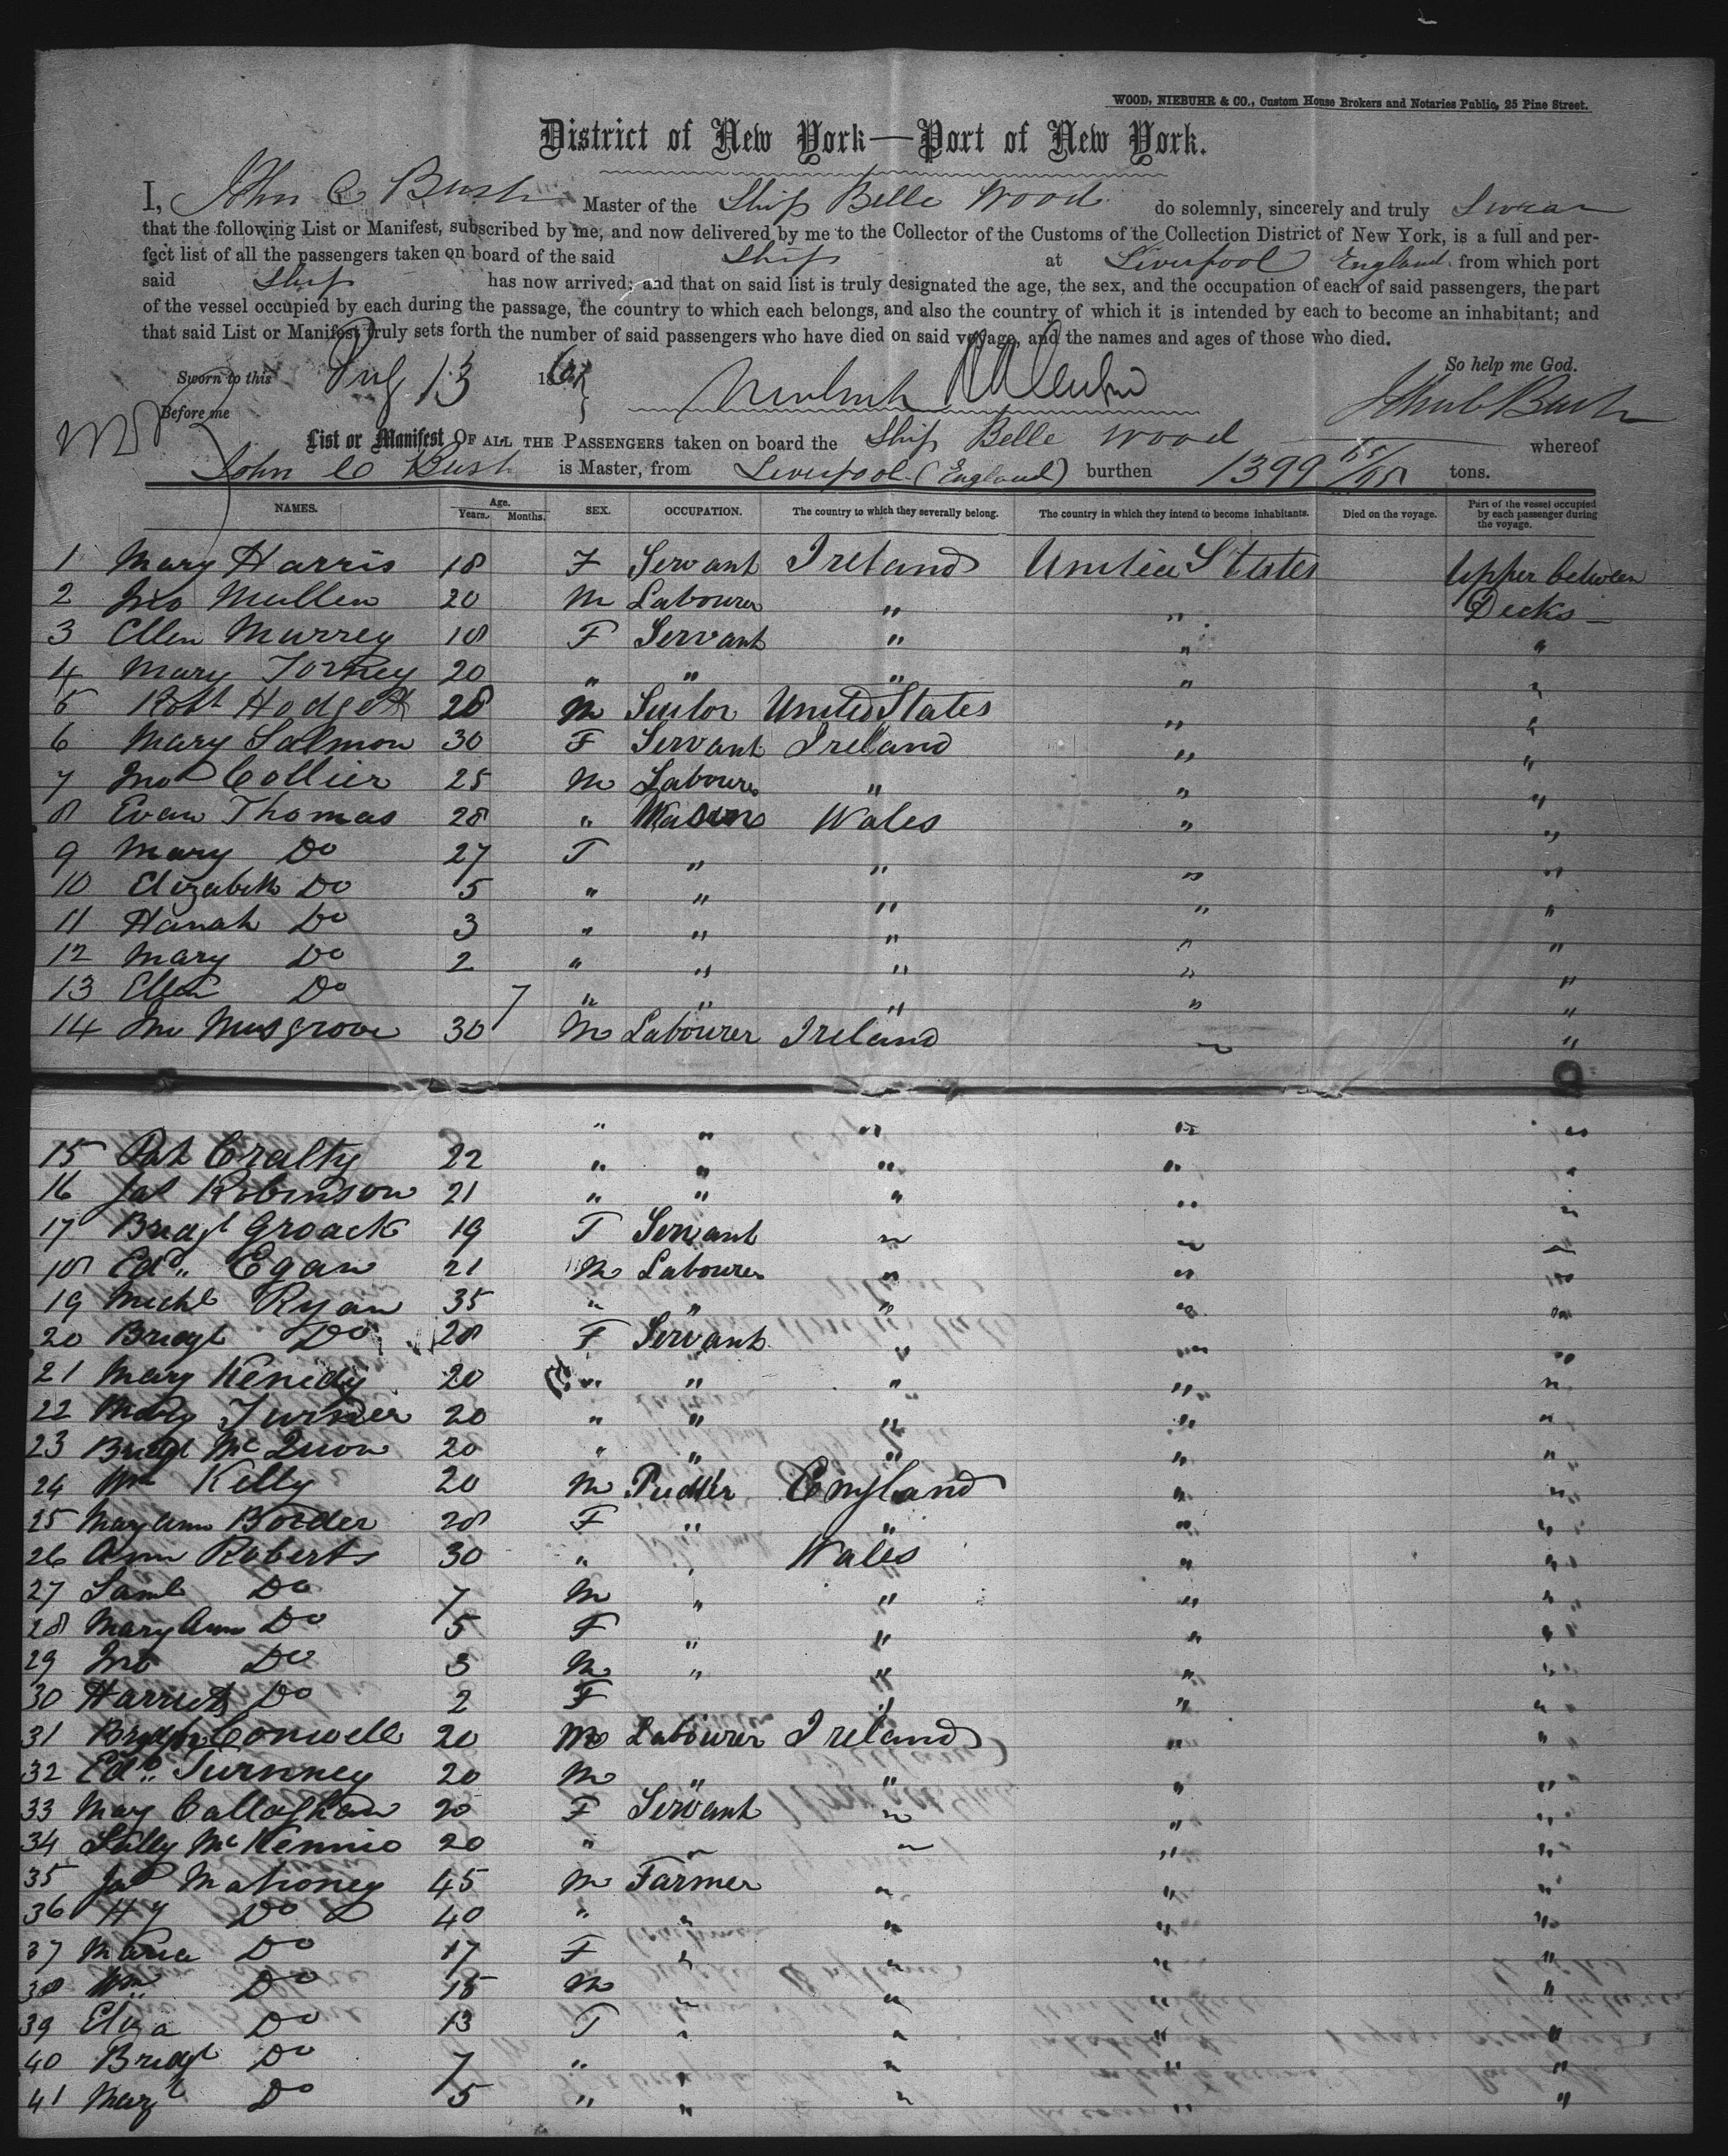 WOOD, NIEBUHR & CO., Custom House Brokers and Notaries Public, 25 Pine Street.
District of New York—Port of New York.
I, John C Bush Master of the Ship Belle Wood do solemnly, sincerely and truly Swear
that the following List or Manifest, subscribed by me, and now delivered by me to the Collector of the Customs of the Collection District of New York, is a full and per-
fect list of all the passengers taken on board of the said Ship at Liverpool England from which port
said Ship has now arrived; and that on said list is truly designated the age, the sex, and the occupation of each of said passengers, the part
of the vessel occupied by each during the passage, the country to which each belongs, and also the country of which it is intended by each to become an inhabitant; and
that said List or Manifest truly sets forth the number of said passengers who have died on said voyage, and the names and ages of those who died.
So help me God.
Sworn to this 13 18
Before me
John C Bush
List or Manifest OF ALL THE PASSENGERS taken on board the Ship Belle Wood whereof
John C Bush is Master, from Liverpool (England) burthen 1399 tons.
NAMES. Age. Years. Months. SEX. OCCUPATION. The country to which they severally belong. The country in which they intend to become inhabitants. Died on the voyage. Part of the vessel occupied by each passenger during the voyage.
1 Mary Harris 18 F Servant Ireland United States Upper between
2 Jno Mullen 20 M Labourer " " Decks
3 Ellen Murrey 18 F Servant " " "
4 Mary Torney 20 " " " " "
5 Robt 28 M Sailor United States " "
6 Mary Salmon 30 F Servant Ireland " "
7 Jno Collier 25 M Labourer " " "
8 Evan Thomas 28 " Mason Wales " "
9 Mary Do 27 F " " " "
10 Elizabeth Do 5 " " " " "
11 Hanah Do 3 " " " " "
12 Mary Do 2 " " " " "
13 Ellen Do 7 " " " " "
14 Jno Musgrove 30 M Labourer Ireland " "
" " " " "
15 Pat Cralty 22 " " " " "
16 Jas Robinson 21 " " " " "
17 Bridgt Groack 19 F Servant " " "
18 Edd Egan 21 M Labourer " " "
19 Michl Ryan 35 " " " " "
20 Bridgt Do 28 F Servant " " "
21 Mary Kenidy 20 " " " " "
22 Mary Turner 20 " " " " "
23 Bridgt McQuon 20 " " " " "
24 Wm Kelly 20 M Pudler England " "
25 Mary Ann Border 28 F " " " "
26 Ann Roberts 30 " " Wales " "
27 Saml Do 7 M " " " "
28 Mary Ann Do 5 F " " " "
29 Jno Do 3 M " " " "
30 Harriet Do 2 F " " "
31 Conwell 20 M Labourer Ireland " "
32 Edd 20 M " " " "
33 Mary Callaghan 20 F Servant " " "
34 McKennie 20 " " " " "
35 Jas Mahoney 45 M Farmer " " "
36 Hy Do 40 " " " " "
37 Maria Do 17 F " " " "
38 Wm Do 15 M " " " "
39 Eliza Do 13 F " " " "
40 Bridgt Do 7 " " " " "
41 Mary Do 5 " " " " "